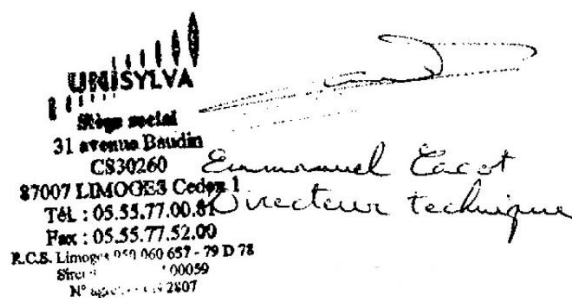 UNISYLVA
Siège social
31 avenue Baudin
CS30260
87007 LIMOGES Cedex 1
Tél. : 05.55.77.00.81
Fax : 05.55.77.52.00
R.C.S. Limoges 060 657 - 79 D 78
Siret 00059
N° 2807
Emmanuel Cacot
Directeur technique